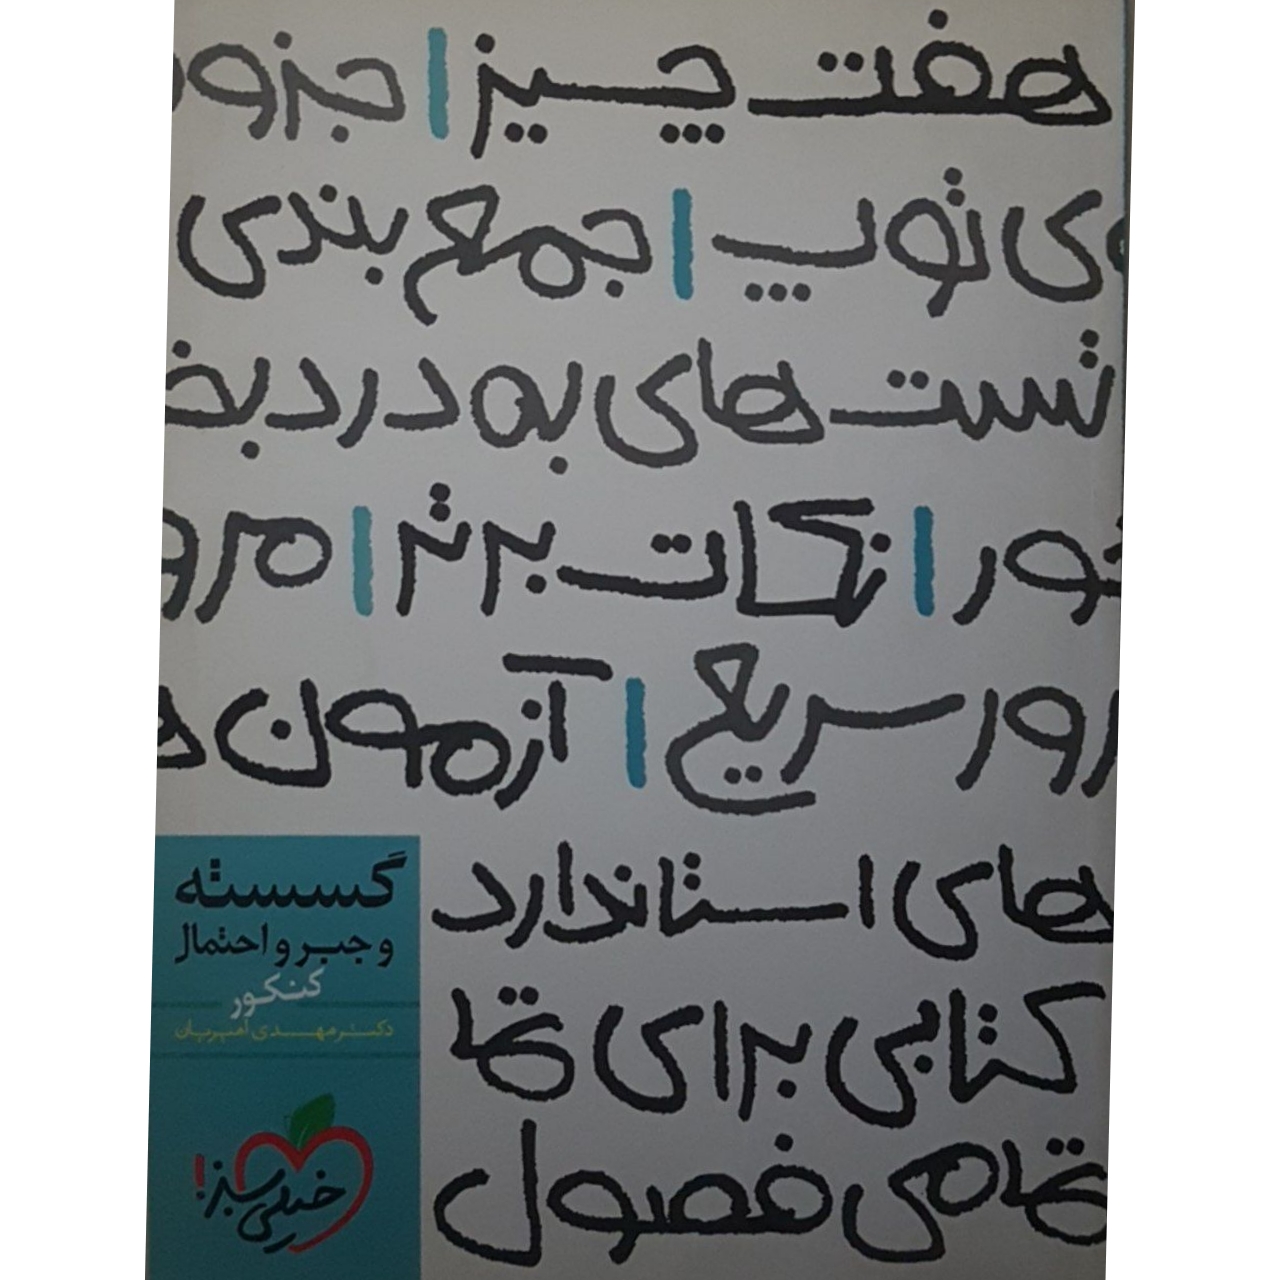 هفت چیز | جزوه
ی توپ | جمع بندی
تست های به درد بخ
خور | نکات برتر | مرو
رور سریع | آزمون ه
های استاندارد
کتابی برای تما
تمامی فصول
گسسته
و جبر و احتمال
کنکور
دکتر مهدی امیریان
خیلی سبز!